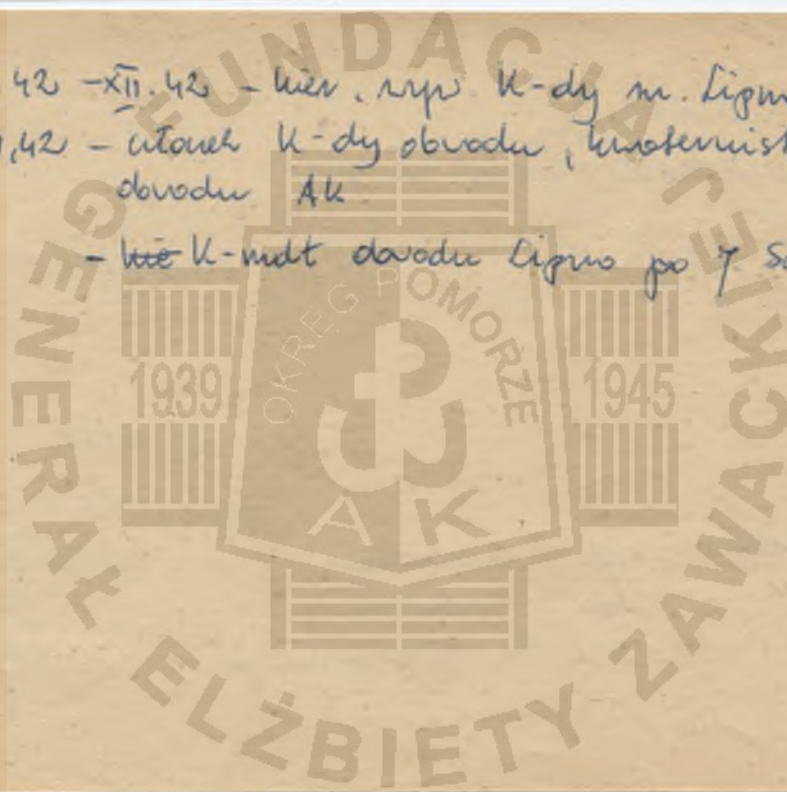 42 - XII.42 - kier. wyp K-dy m. Lipn
,42 - członek K-dy obwodu, kwatermist
obwodu AK
- kie K-mdt obwodu Lipno po 7 S
FUNDACJA GENERAŁ ELŻBIETY ZAWACKIEJ
OKRĘG POMORZE
1939
1945
AK